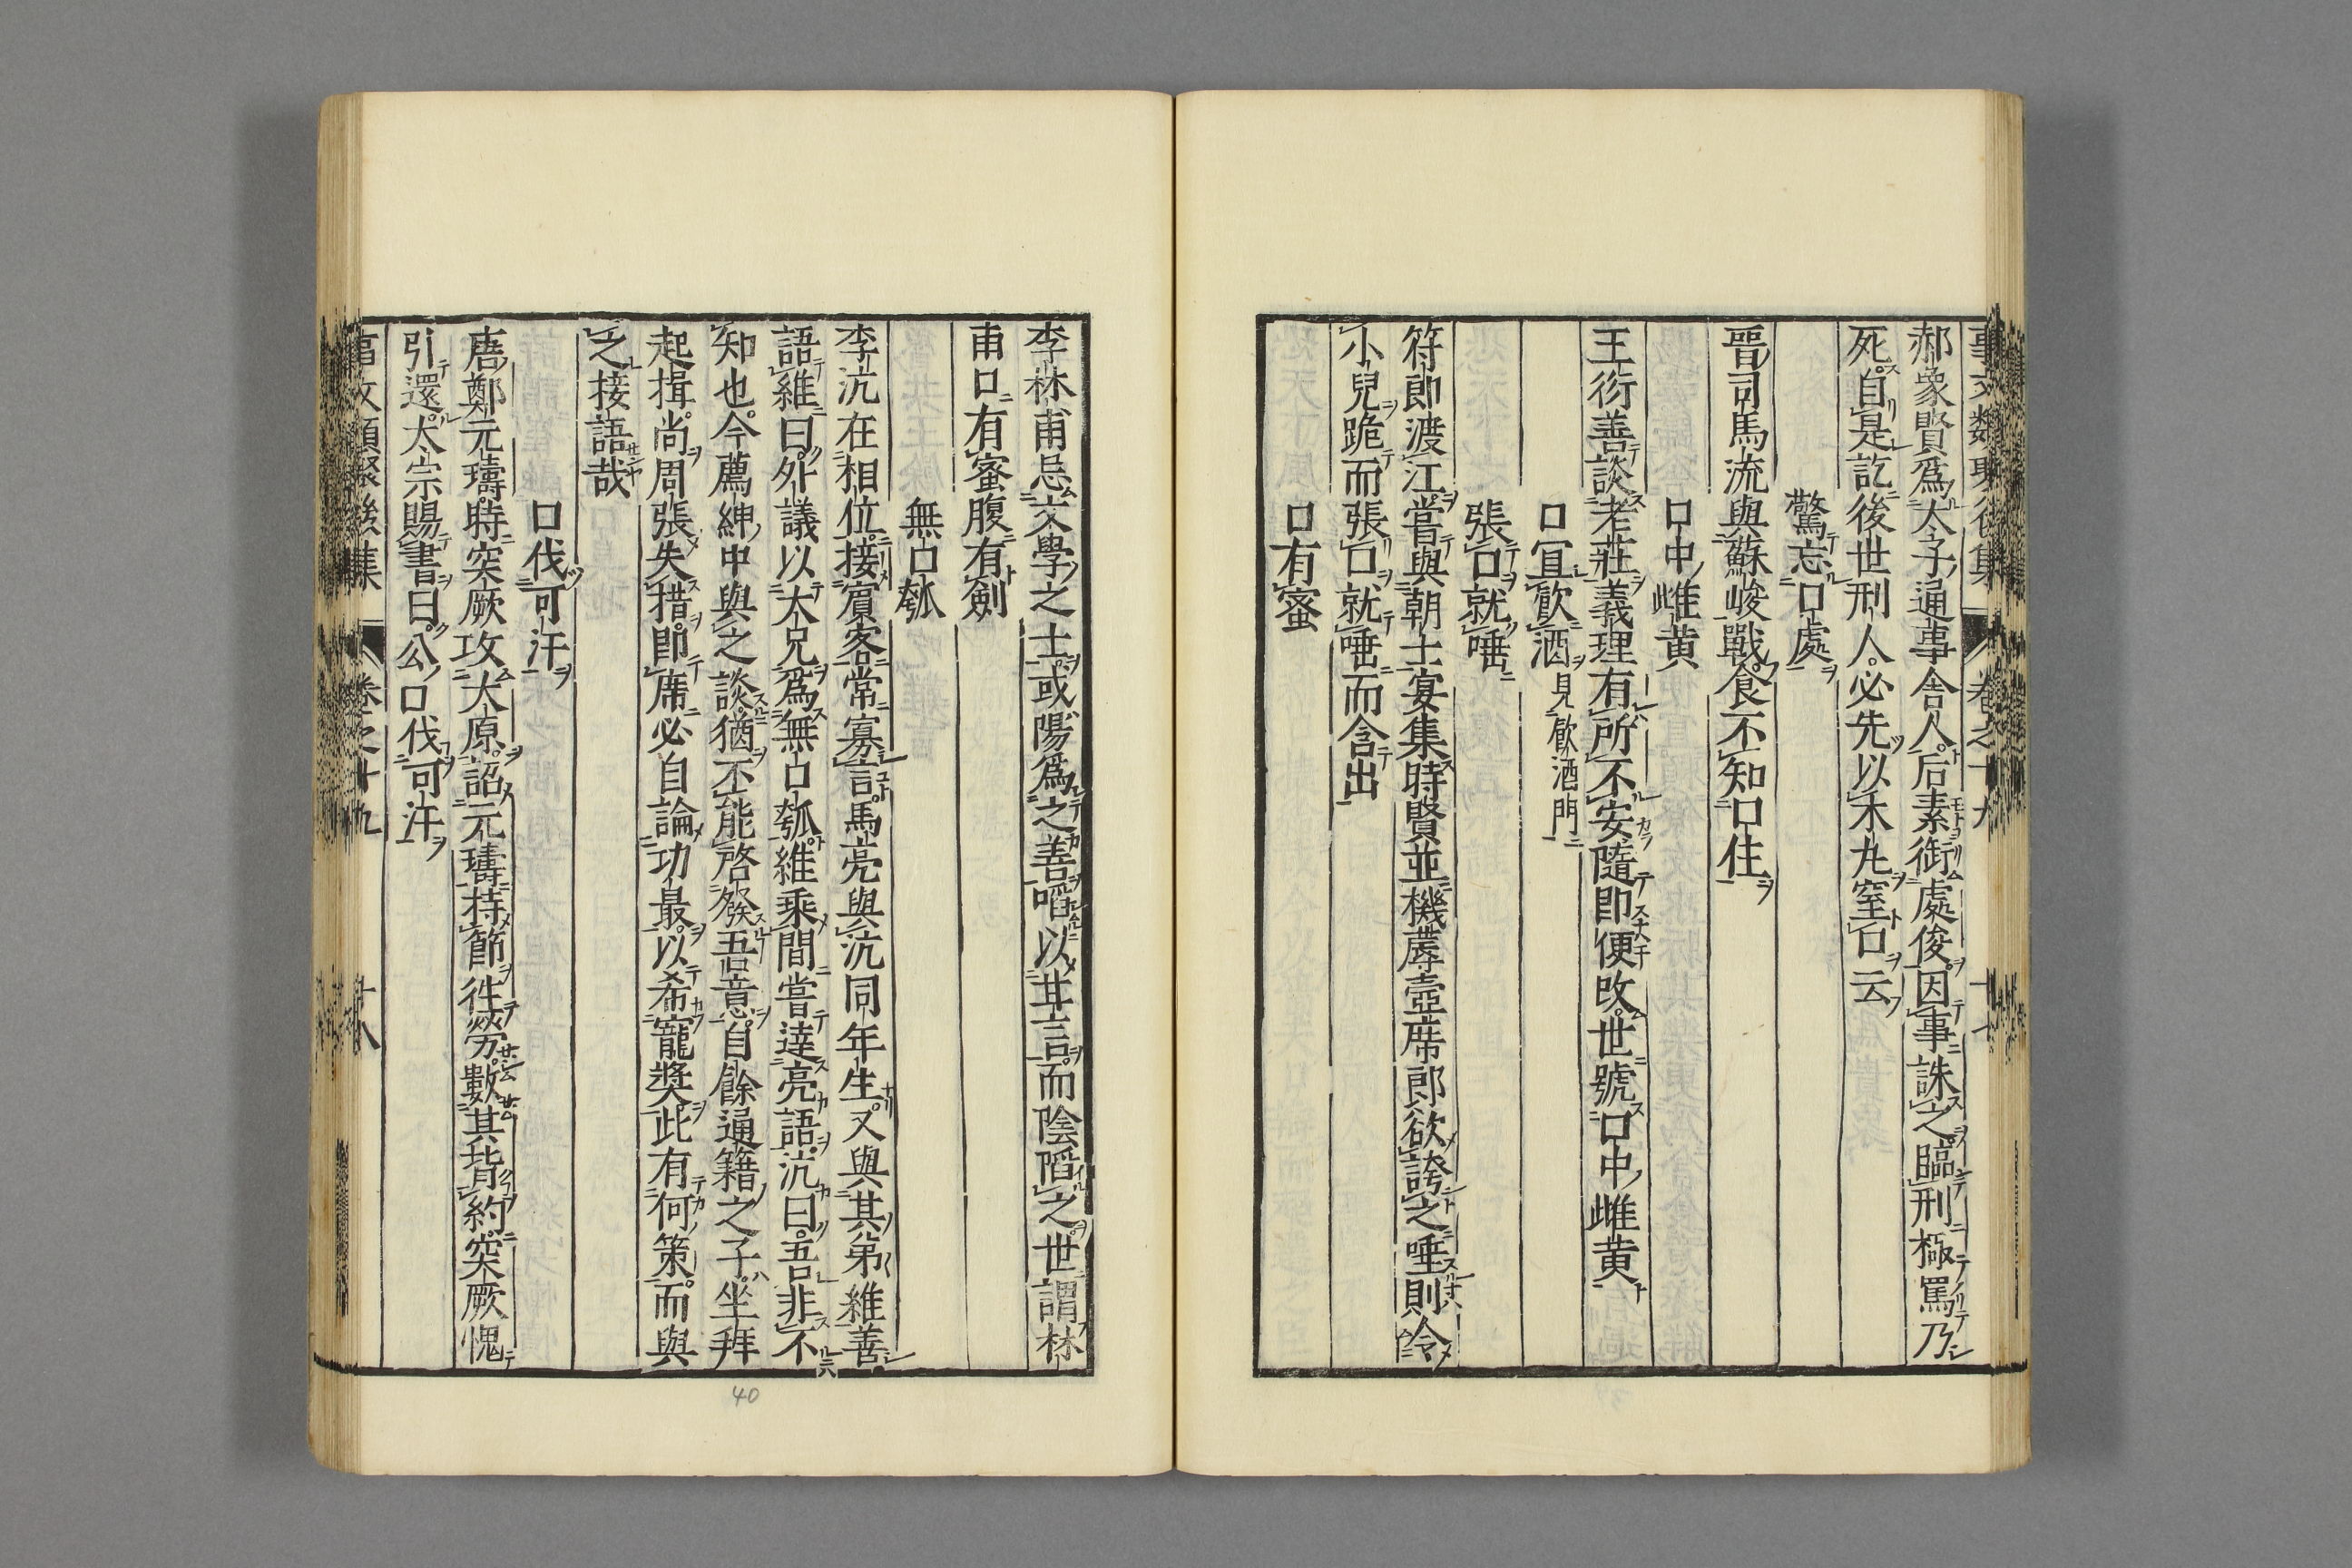 事文類聚後集 卷之十九 十七
郝象賢爲太子通事舍人后素銜處俊因事誅之臨刑極罵乃
死自是訖後世刑人必先以木丸窒口云
驚忘口處
晉司馬流與蘇峻戰食不知口住
口中雌黄
王衍善談老莊義理有所不安隨即便改世號口中雌黄
口宜飮酒 見飮酒門
張口就唾
符郎渡江嘗與朝士宴集時賢並機蓐壺席郎欲誇之唾則令
小兒跪而張口就唾而含出
口有蜜
李林甫忌文學之士或陽爲之善啗以甘言而陰陷之世謂林
甫口有蜜腹有劍
無口瓠
李沆在相位接賔客常寡言馬亮與沆同年生又與其弟維善
語維曰外議以大兄爲無口瓠維乘間嘗達亮語沆曰吾非不
知也今薦紳中與之談猶不能啓發吾意自餘通籍之子坐拜
起揖尚周張失措即席必自論功最以希寵奬此有何策而與
之接語哉
口伐可汗
唐鄭元璹時突厥攻太原詔元璹持節往勞數其背約突厥愧
引還太宗賜書曰公口伐可汗
事文類聚後集 卷之十九 十八
40